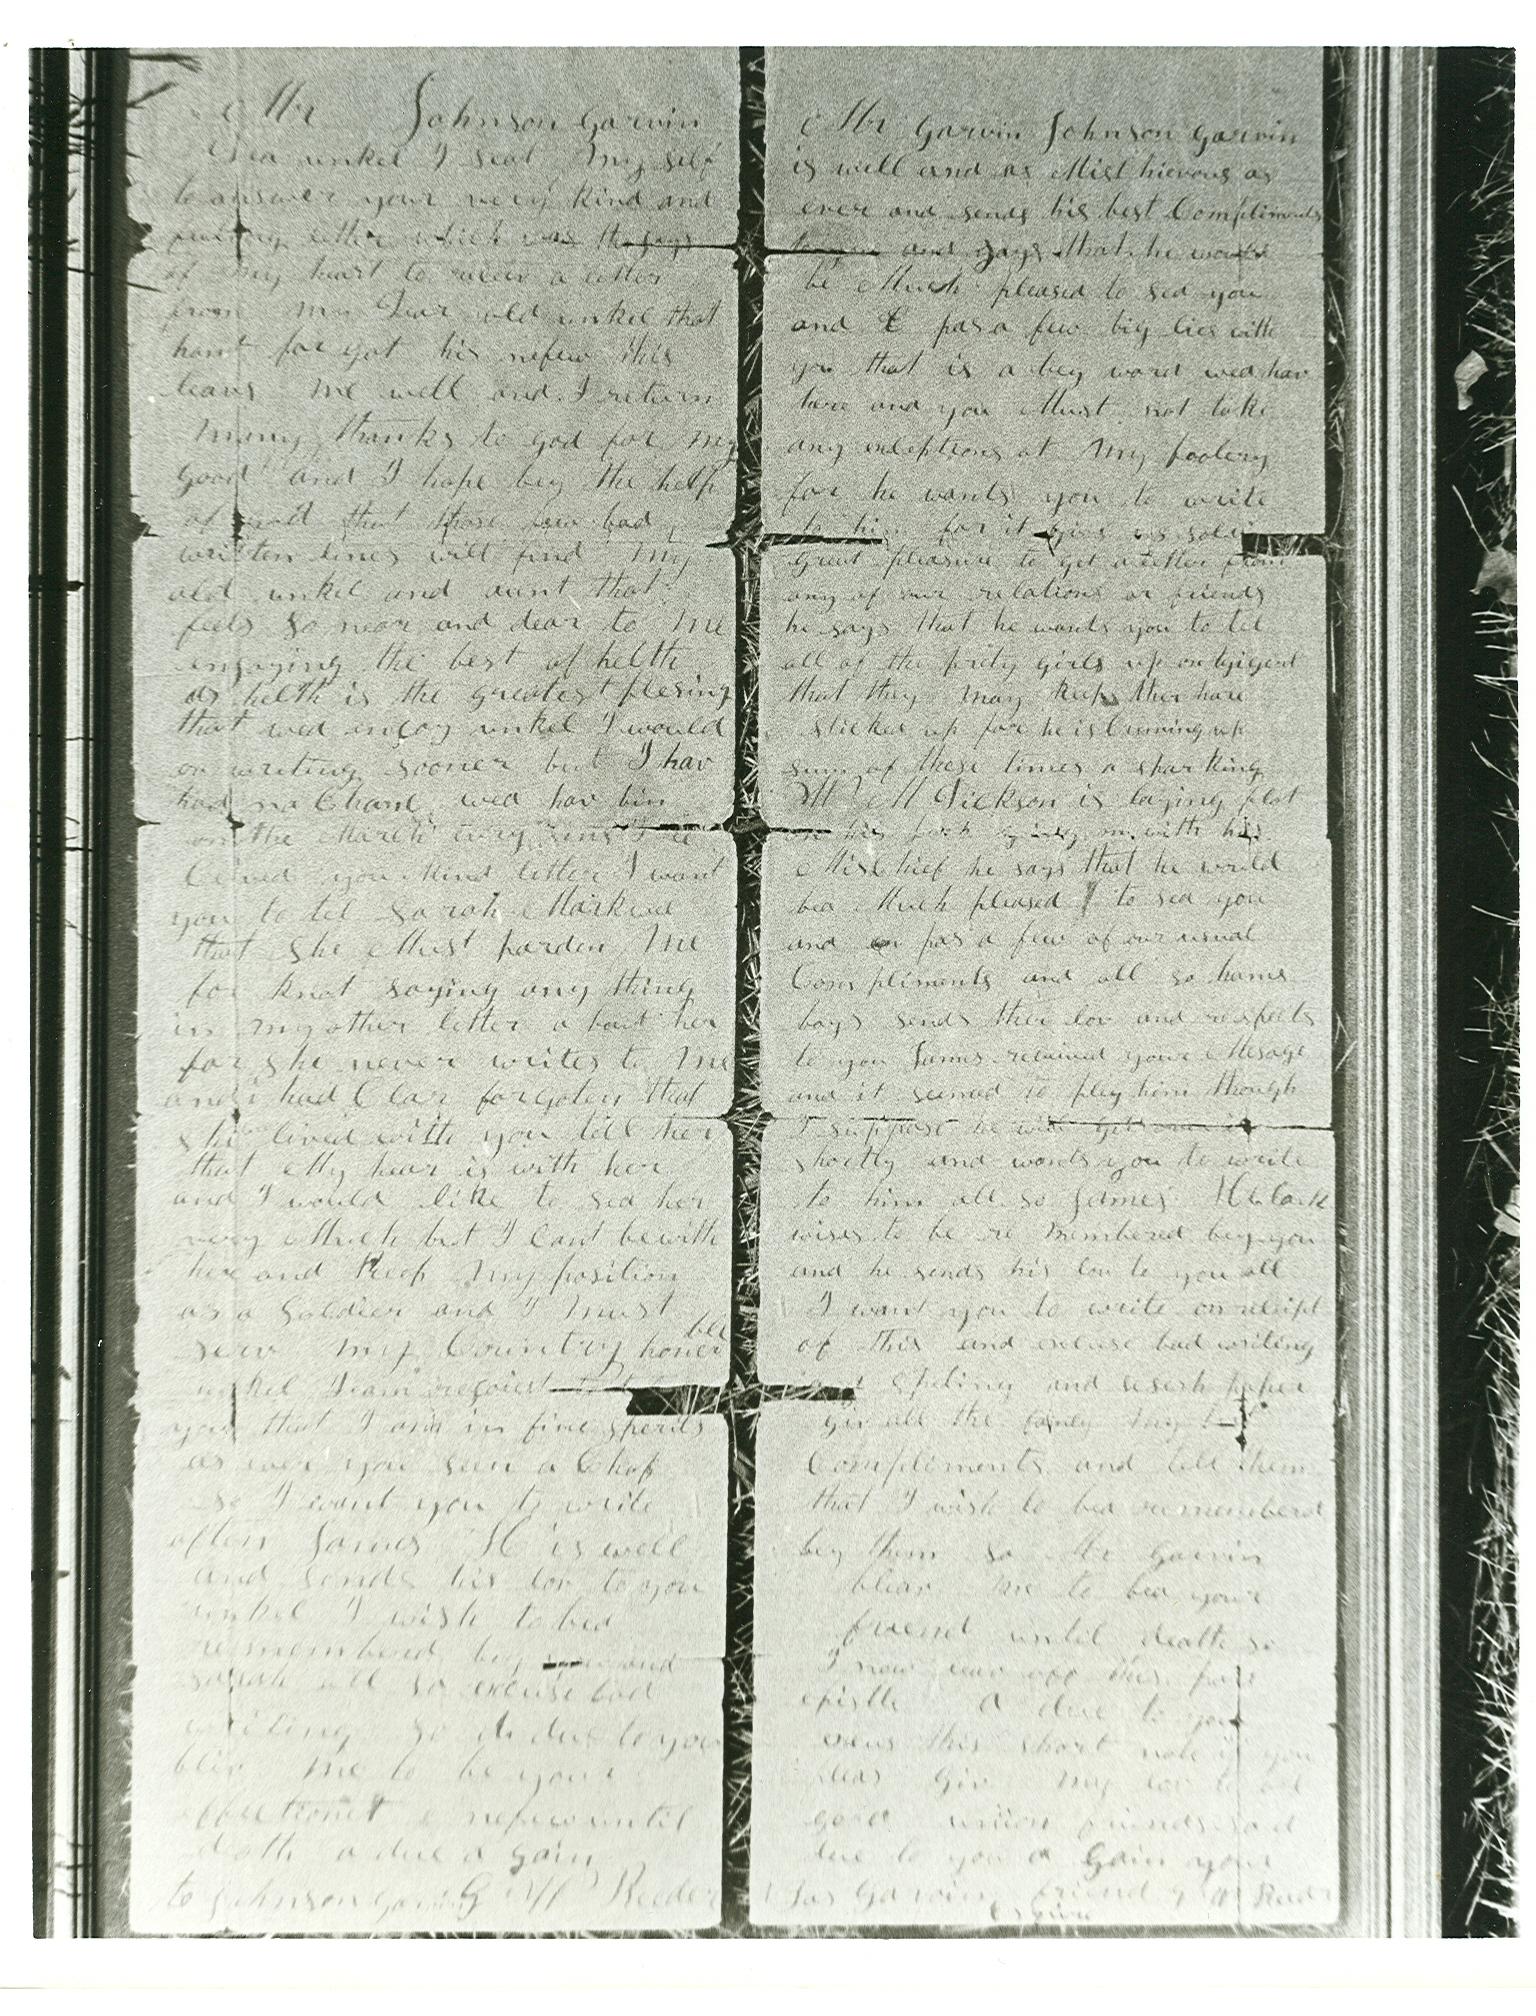 Mr Johnson Garvin
Dea unkel I seat My self
to answer your very kind and
letter which was the joys
of my heart to receiv a letter
from my Dear old unkel that
hant forgot his nefew this
leavs Me well and I return
Many thanks to god for My
good and I hope bey the help
of god that those few bad
written lines will find My
old unkel and aunt that
feels So near and dear to Me
injoying the best of helth
as helth is the greatest plesing
that wed enjoy unkel I would
on writing sooner but I hav
had no Chanc wed hav bin
on the March every since I re
Ceived your kind letter I want
you to tel Sarah
that She Must parden Me
for knot saying any thing
in my other letter a bout her
for she never writes to Me
and i had Clar forgoten that
She lived with you tell her
that My hear is with her
and I would like to sea her
very Much but I Cant be with
here and Keep My position
as a Soldier and I Must
serv my Country honer bel
unkel I can
you that I am in fine sperits
as ever you seen a Chap
so I want you to write
often James H is well
and sends his lov to you
unkel I wish to bed
remembend bey you and
sarah all so excuse bad
writing so a due to you
bliv Me to be your
affectionet nefew until
death a due a gain
to Johnson Garvin G W Reeder
Mr Garvin Johnson Garvin
is well and as Mischievous as
ever and sends his best Compliments
and says that he would
be Much pleased to sea you
and pas a few big lies with
you that is a bey word wed hav
here and you Must not take
any exceptions at My foolery
for he wants you to write
to him for it givs us soldi
great pleasure to get a letter from
any of our relations or friends
he says that he wants you to tel
all of the prity girls up on
that they may keep ther hare
slicked up for he is Cuming up
sum of these times a sparking
W M Dickson is laying flat
on his back going on with his
Mischief he says that he would
bea Much pleased to sea you
and pas a few of our usual
Compliments and all so hams
boys sends ther lov and respects
to you James received your Mesage
and it seemed to pleg him though
I suppose he will get over it
shortly and wants you to write
to him all so James
wises to be re membered bey you
and he sends his lov to you all
I want you to write on receipt
of this and excuse bad writing
and speling and sesesh paper
giv all the famly my best
Compliments and tell them
that I wish to bea remembered
bey them so Mr Garvin
bleav me to bea your
friend until death so
I now this
epistle a due to you
excus this short note if you
pleas Giv my lov to all
good union friends so a
due to you a Gain your
Jas Garvin friend G W Reeder
Esquire